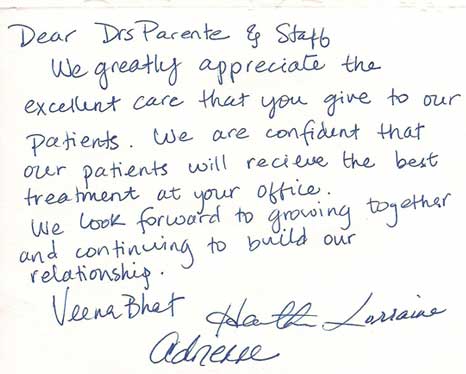 Dear Drs Parente & Staff
We greatly appreciate the
excellent care that you give to our
patients. We are confident that
our patients will recieve the best
treatment at your office.
We look forward to growing together
and continuing to build our
relationship.
Veena Bhat Heath Lorraine